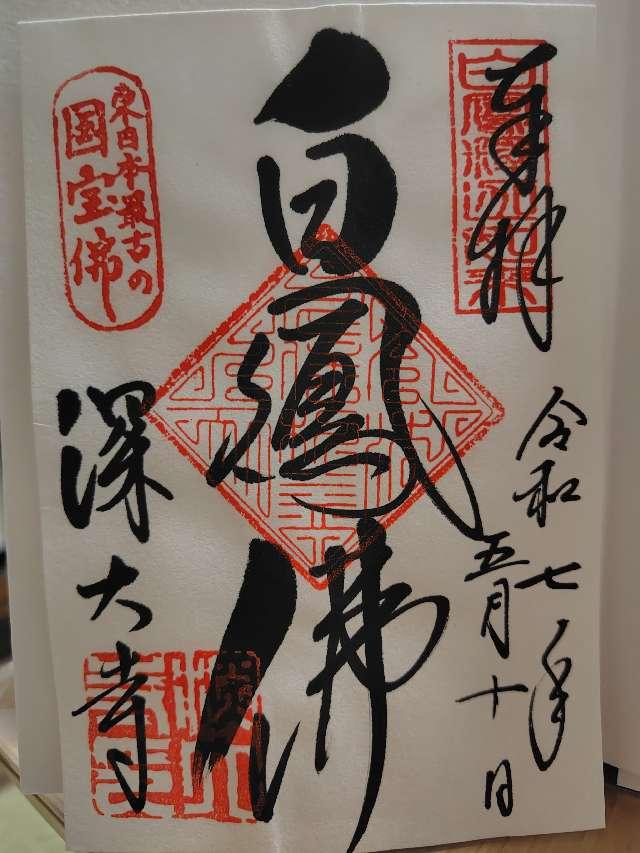 奉拝
令和七年
五月十日
白鳳佛
東日本最古の
国宝佛
深大寺